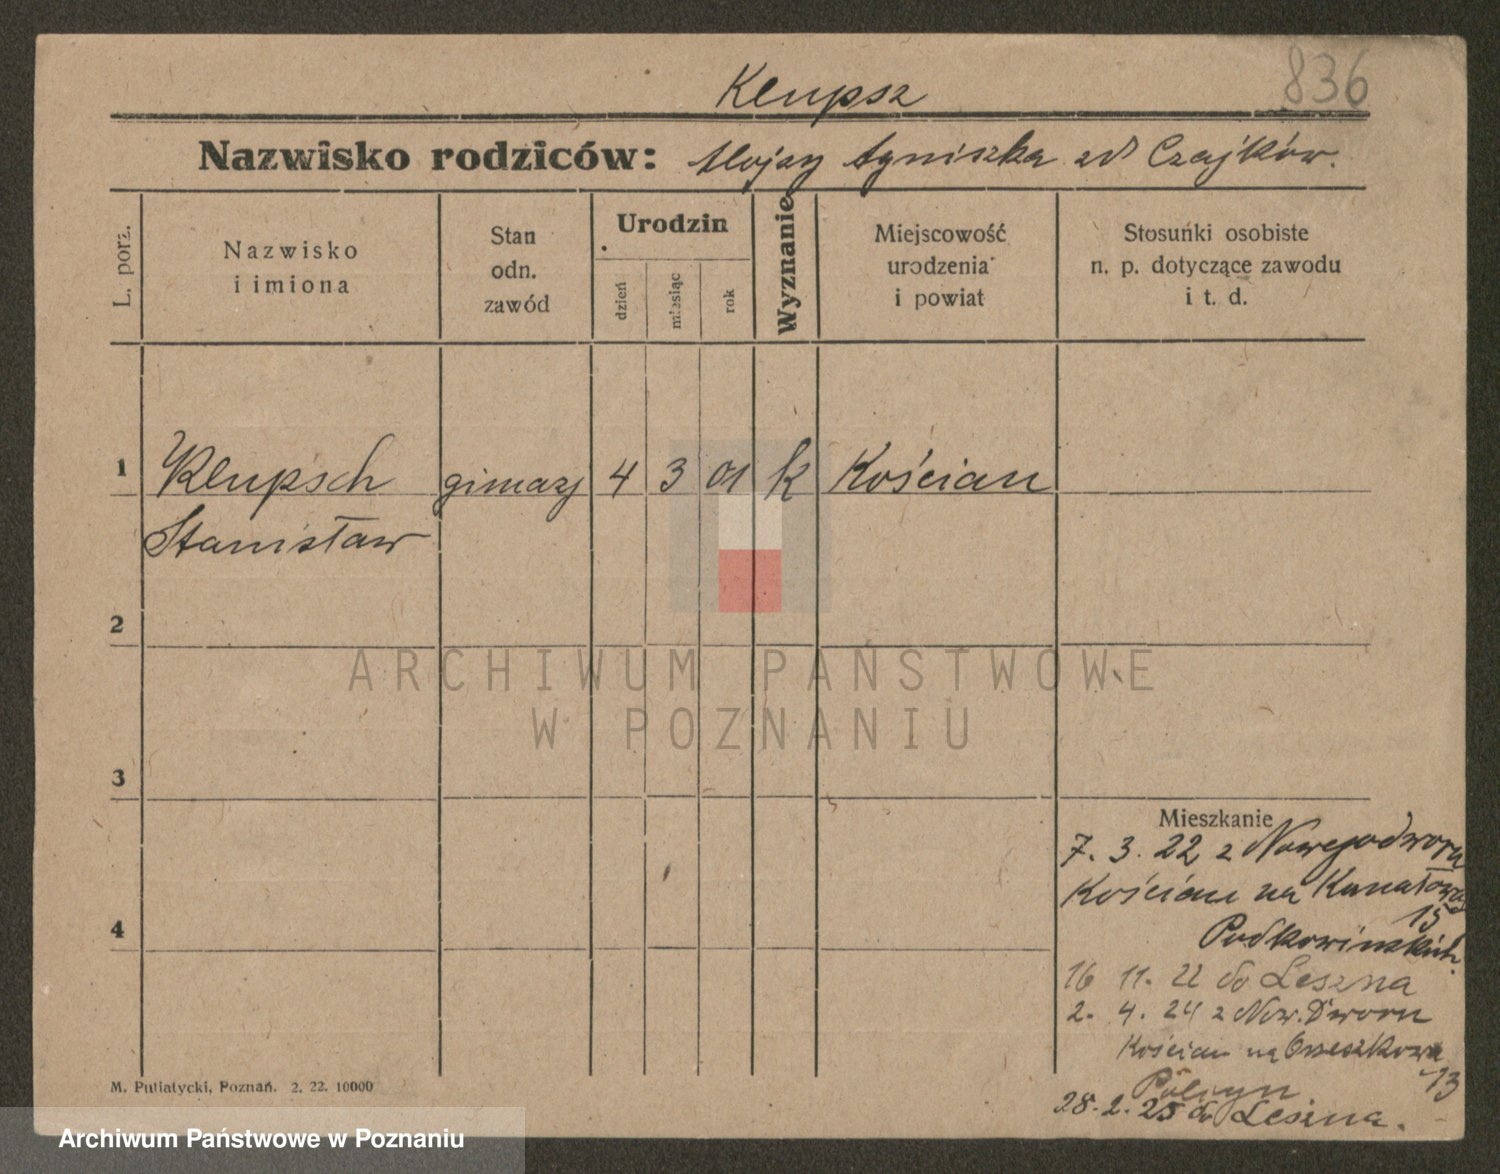 836
Klupsz
Nazwisko rodziców: Alojzy Agniszka zd Czajków.
L. porz.
Nazwisko
i imiona
Stan
odn.
zawód
Urodzin
dzień
miesiąc
rok
Wyznanie
Miejscowość
urodzenia
i powiat
Stosunki osobiste
n. p. dotyczące zawodu
i t. d.
1 Klupsch gimazj 4 3 01 k Kościan
Stanisław
2
3
4
Mieszkanie
7. 3. 22 z Nowegodworu
Kościan na Kanałowa
15
Podkowinskich.
16 11. 22 do Leszna
2. 4. 24 z Now. Dworu
Kościan na Orzeszkowa
13
28. 2. 25 do Leszna.
M. Putiatycki, Poznań. 2. 22. 10000
ARCHIWUM PAŃSTWOWE
W POZNANIU
Archiwum Państwowe w Poznaniu